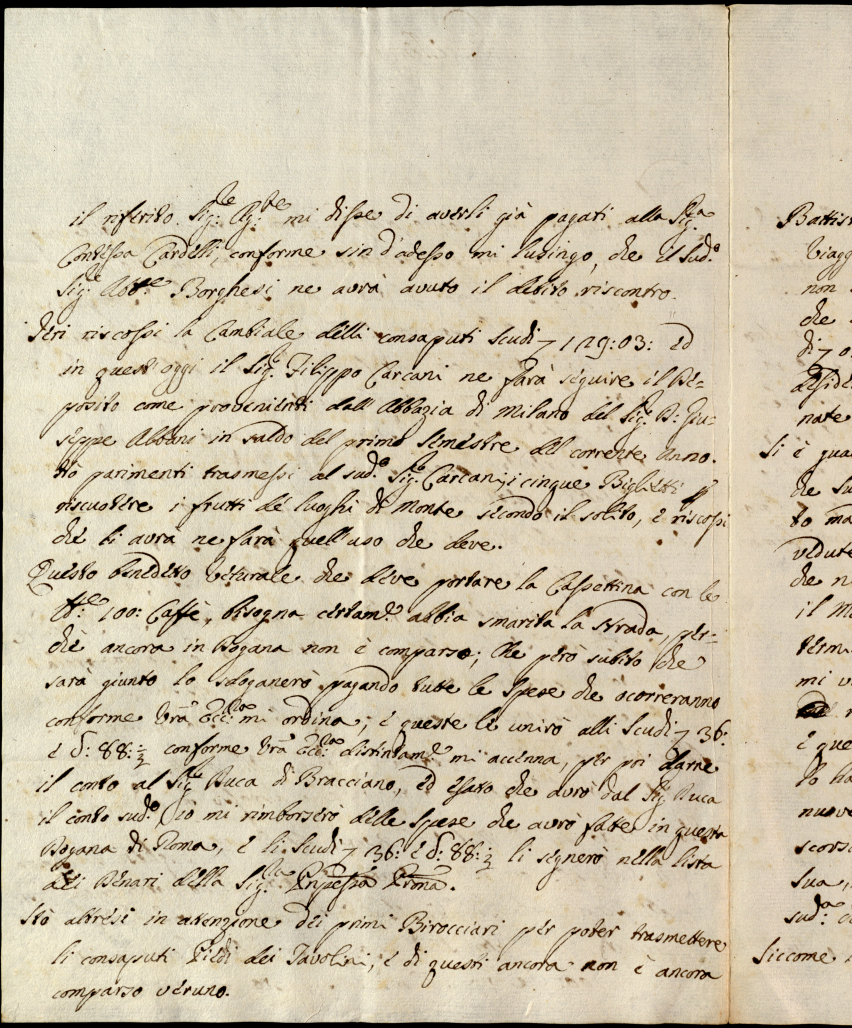 il riferito Sig:re Ag:te mi disse di averli già pagati alla Sig:ra
Contessa Cardelli, conforme sin d'adesso mi lusingo, che il Sud:o
Sig:re Abb:te Borghesi ne avrà avuto il debito riscontro.
Jeri riscossi la Cambiale delli consaputi Scudi 129:03: ed
in quest'oggi il Sig:re Filippo Carcani ne farà seguire il De=
posito come provenienti dall'Abbazia di Milano del Sig:re D: Giu=
seppe Albani in saldo del primo Semestre del corrente Anno.
Hò parimenti trasmessi al sud:o Sig:re Carcani i cinque Biglietti p
riscuotere i frutti de luoghi di Monte secondo il solito, e riscossi
che li avrà ne farà quell'uso che deve.
Questo benedetto Vetturale che deve portare la Cassettina con le
lb:re 100: Caffè, bisogna certam:e abbia smarita la strada, per=
chè ancora in Dogana non è comparso; Che però subito che
sarà giunto lo sdoganerò pagando tutte le Spese che ocorreranno
conforme Vra Ecc:za mi ordina; e queste le unirò alli Scudi 36:
e d: 88:½ conforme Vra Ecc:za distintam:e mi accenna, per poi darne
il conto al Sig:re Duca di Bracciano, ed esato che avrò dal Sig:re Duca
il conto sud:o Io mi rimborserò delle Spese che avrò fatte in questa
Dogana di Roma, e li Scudi 36: e d: 88:½ li segnerò nella lista
dei Denari della Sig:ra Pnpessa Prma.
Stò altresì in attenzione dei primi Birocciari per poter trasmettere
li consaputi Piedi dei Tavolini, e di questi ancora non è ancora
comparso veruno.
non
che
nate
Si è
che
to
che n
il
mi
è que
nuove
Sua,
sud:a
Siccome